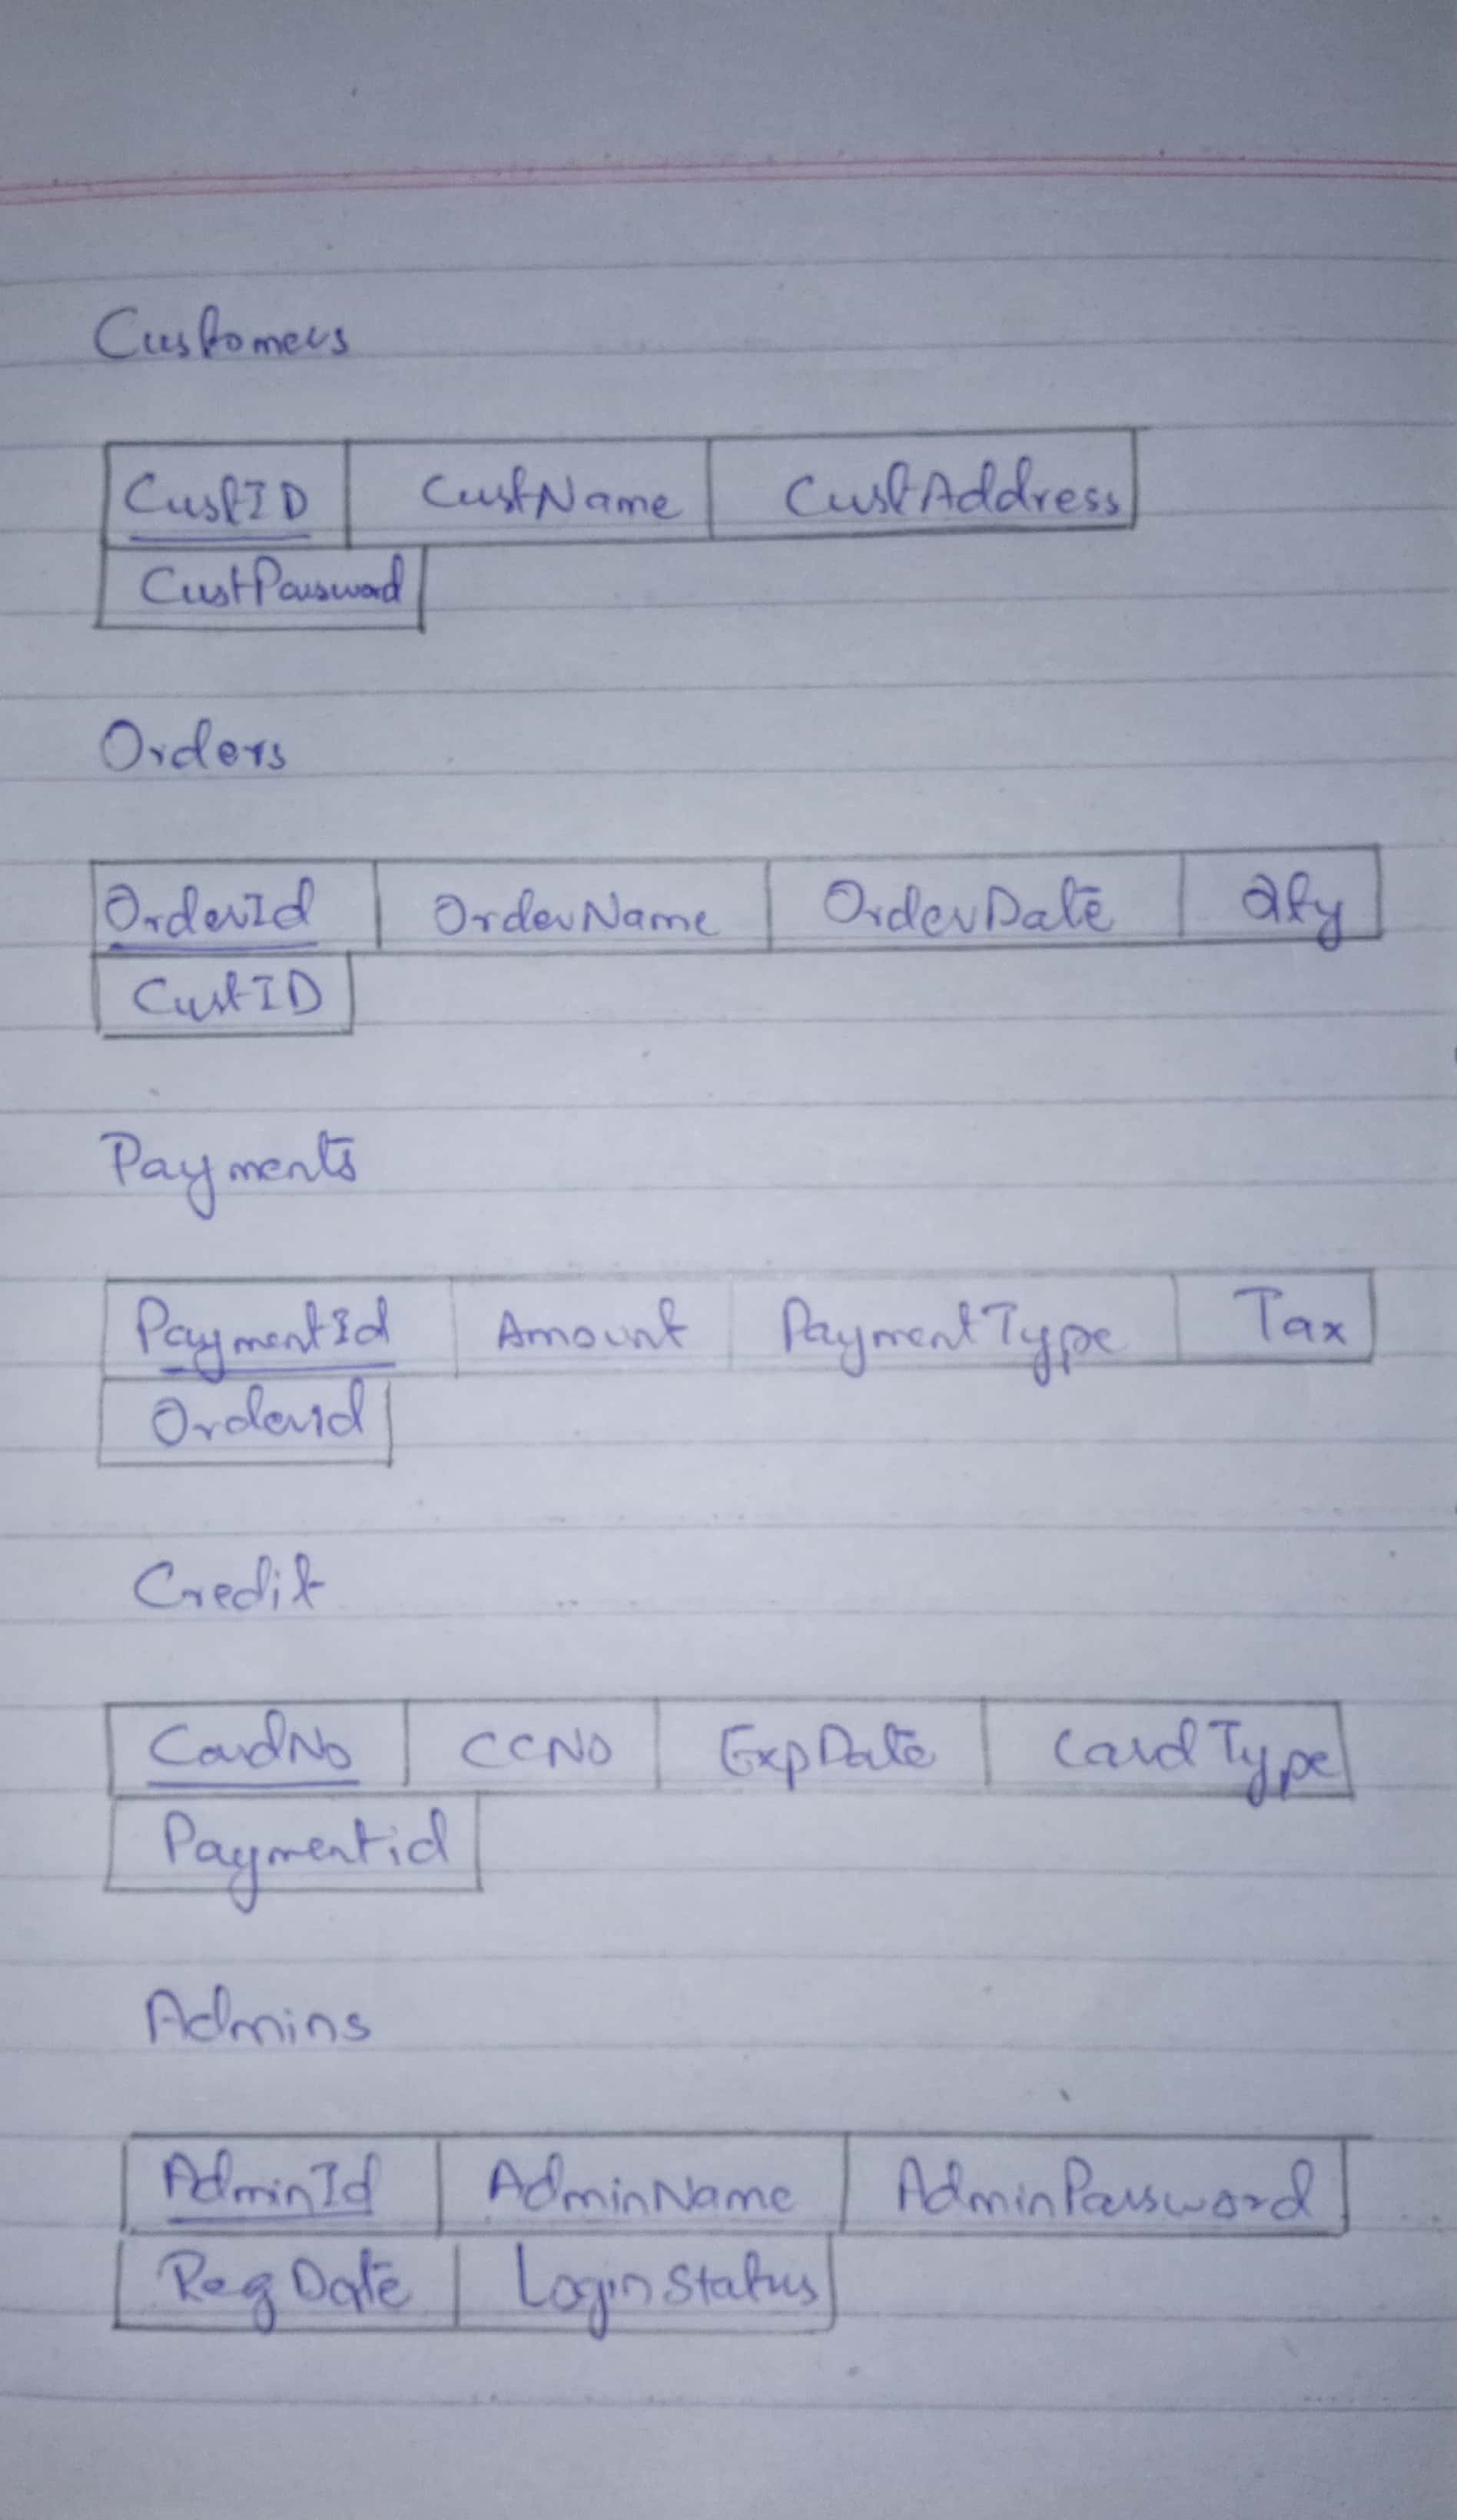 Customers
CustID CustName CustAddress
CustPassword
Orders
OrderId OrderName OrderDate Qty
CustID
Payments
PaymentId Amount PaymentType Tax
Orderid
Credit
CardNo CCNO ExpDate CardType
Paymentid
Admins
AdminId AdminName AdminPassword
RegDate LoginStatus